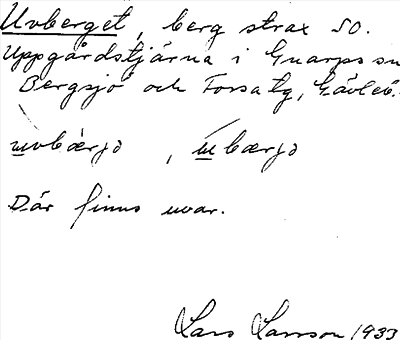 Uvberget, berg strax SO.
Uppgårdstjärna i Gnarps sn
Bergsjö och Forsa tg, Gävleb.
uvbærjə , u bærjə
Där finns uvar.
Lars Larsson 1933